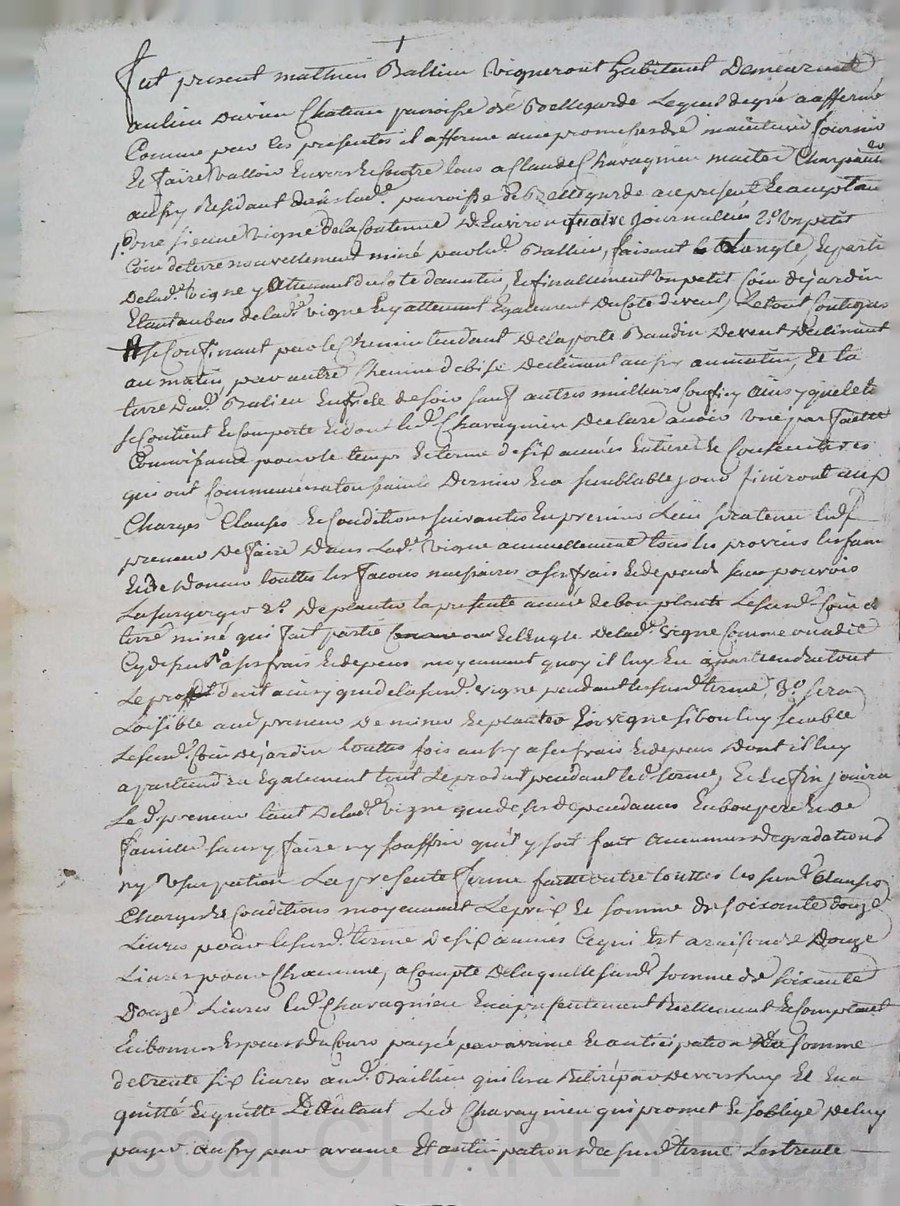 †
fut present mathieu Ballieu vigneront habitant demeurant
au lieu du vieu Chateau paroisse de Bellegarde Lequel de gré a affermé
Comme par les presentes il afferme avec promesse de maintenir fournir
Et faire valloir Envers Et Contre tous a Claude Chavagnieu maitre Charpentier
aussy Residant dans lad.e paroisse de Bellegarde ace present Et acceptant
1.o une sienne vigne de la Contenue d'Environ quatre journallées 2.o un petit
Coin de terre nouvellement miné par led. Ballieu, faisant le langle, Et partie
De lad.e vigne y attenant du coté du matin, Et finallement un petit Coin de jardin
Etant au bas de lad.e vigne Et y attenant Egalement du Coté de vent, Le tout Contigus
Se Confinant par le Chemin tendant de la porte Baudin de vent declinant
au matin, par autre Chemin de bise declinant aussy au matin, Et la
terre dud. Balieu de soir sauf autres meilleurs Confins ainsy que le tout
se Contient Et Comporte Et dont led. Chavagnieu declare avoir une parfaitte
Connoissance pour le temps Et terme de six années Entieres Et Consecutives
qui ont Commencé a toussaints dernier Et a semblable jour finiront aux
Charges Clauses Et Conditions suivantes En premier Lieu sera tenu led.
preneur de faire dans lad.e vigne annuellement tous les provins
Et de donner touttes les facons necessaires a ses frais Et depends sans pouvoir
La surcharger 2.o De planter la presente année de bon plants Le susd. Coin de
terre miné qui fait partie Et langle de lad.e vigne Comme on a dit
Cy dessus a ses frais Et depens moyennant quoy il luy En apartiendra tout
Le profit du it ainsy que de la susd. vigne pendant le susd. terme, 3.o sera
Loisible aud. preneur de miner Et planter En vigne si bon luy semble
Le susd. Coin de jardin touttes fois aussy a ses frais Et depens dont il luy
apartiendra Egalement tout Le produit pendant led. terme, Et Enfin jouira
Le d. preneur tant de lad.e vigne que de ses dependances En bon pere de
famille sans y faire ny souffrir qu'il y soit fait aucunnes degradations
ny usurpation La presente ferme faitte outre touttes les susd. Clauses
Charges Et Conditions moyennant Le prix Et somme de soixante douze
Livres pour le susd. terme de six années Ce qui Est a raison de Douze
Livres pour Chacunne, a compte de laquelle susd. somme de soixante
Douze Livres led. Chavagnieu En a presentement Reellement Et Comptant
En bonnes Especes du Cours payé par avance Et anticipation la somme
de trente six livres aud. Baillieu qui les a Retiré par devers luy Et En a
quitté Et quitte led. Chavagnieu qui promet Et s'oblige de luy
payer aussy par avance Et anticipation du susd. terme Les trente
Pascal CHAREYRON